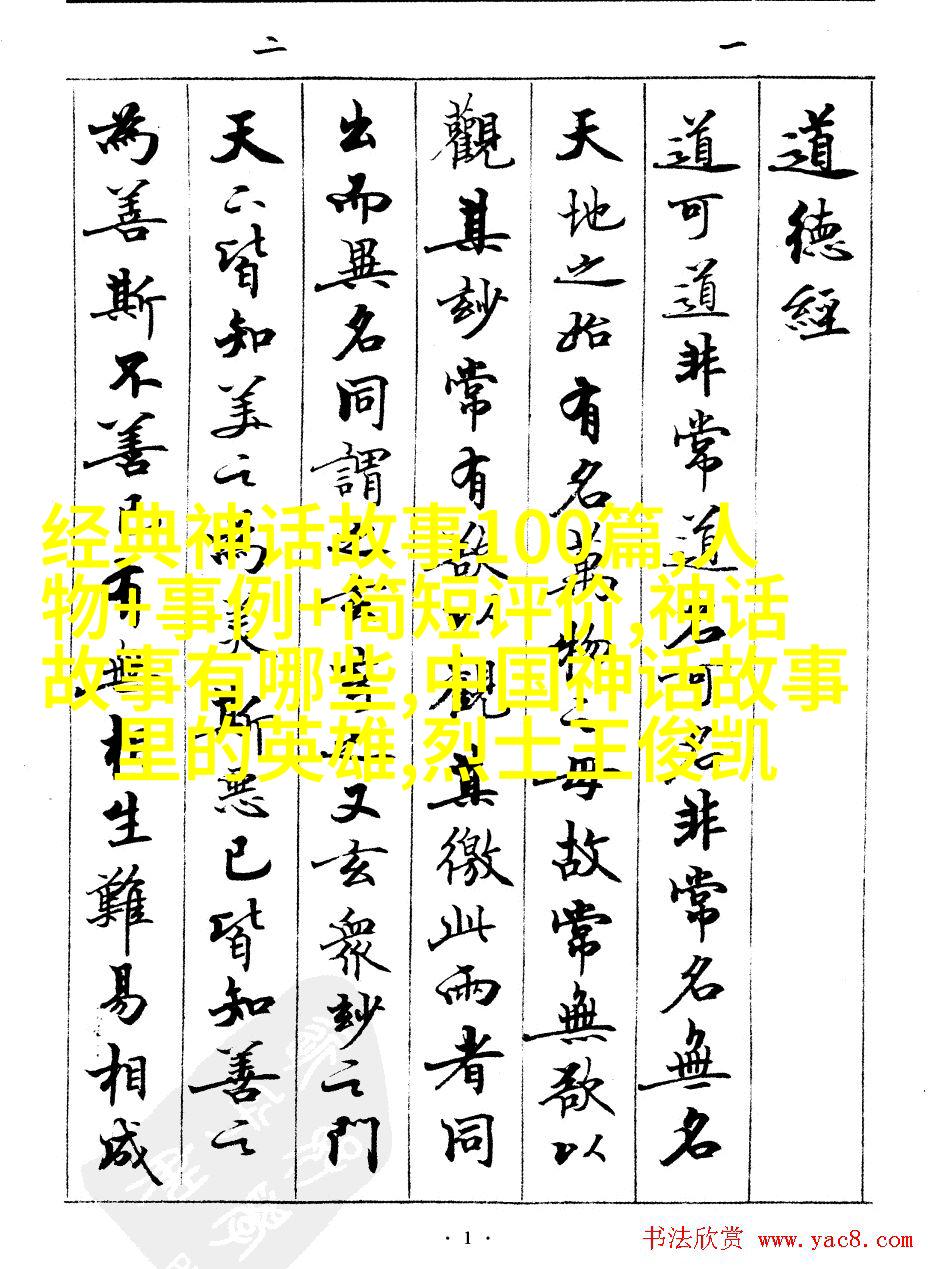 一
二
道德經
道可道非常道名可名非常名無名
天地之始有名萬物之母故常無欲以
觀其玅常有欲以觀其徼此兩者同
出而異名同謂又玄眾玅之門
天下皆知美之為美斯惡已皆知善之
為善斯不善已有無相生難易相成
经典神话故事100篇,人
物+事例+简短评价,神话
故事有哪些,中国神话故事
里的英雄,烈士王俊凯
· 1 ·
书法欣赏 www.yac8.com